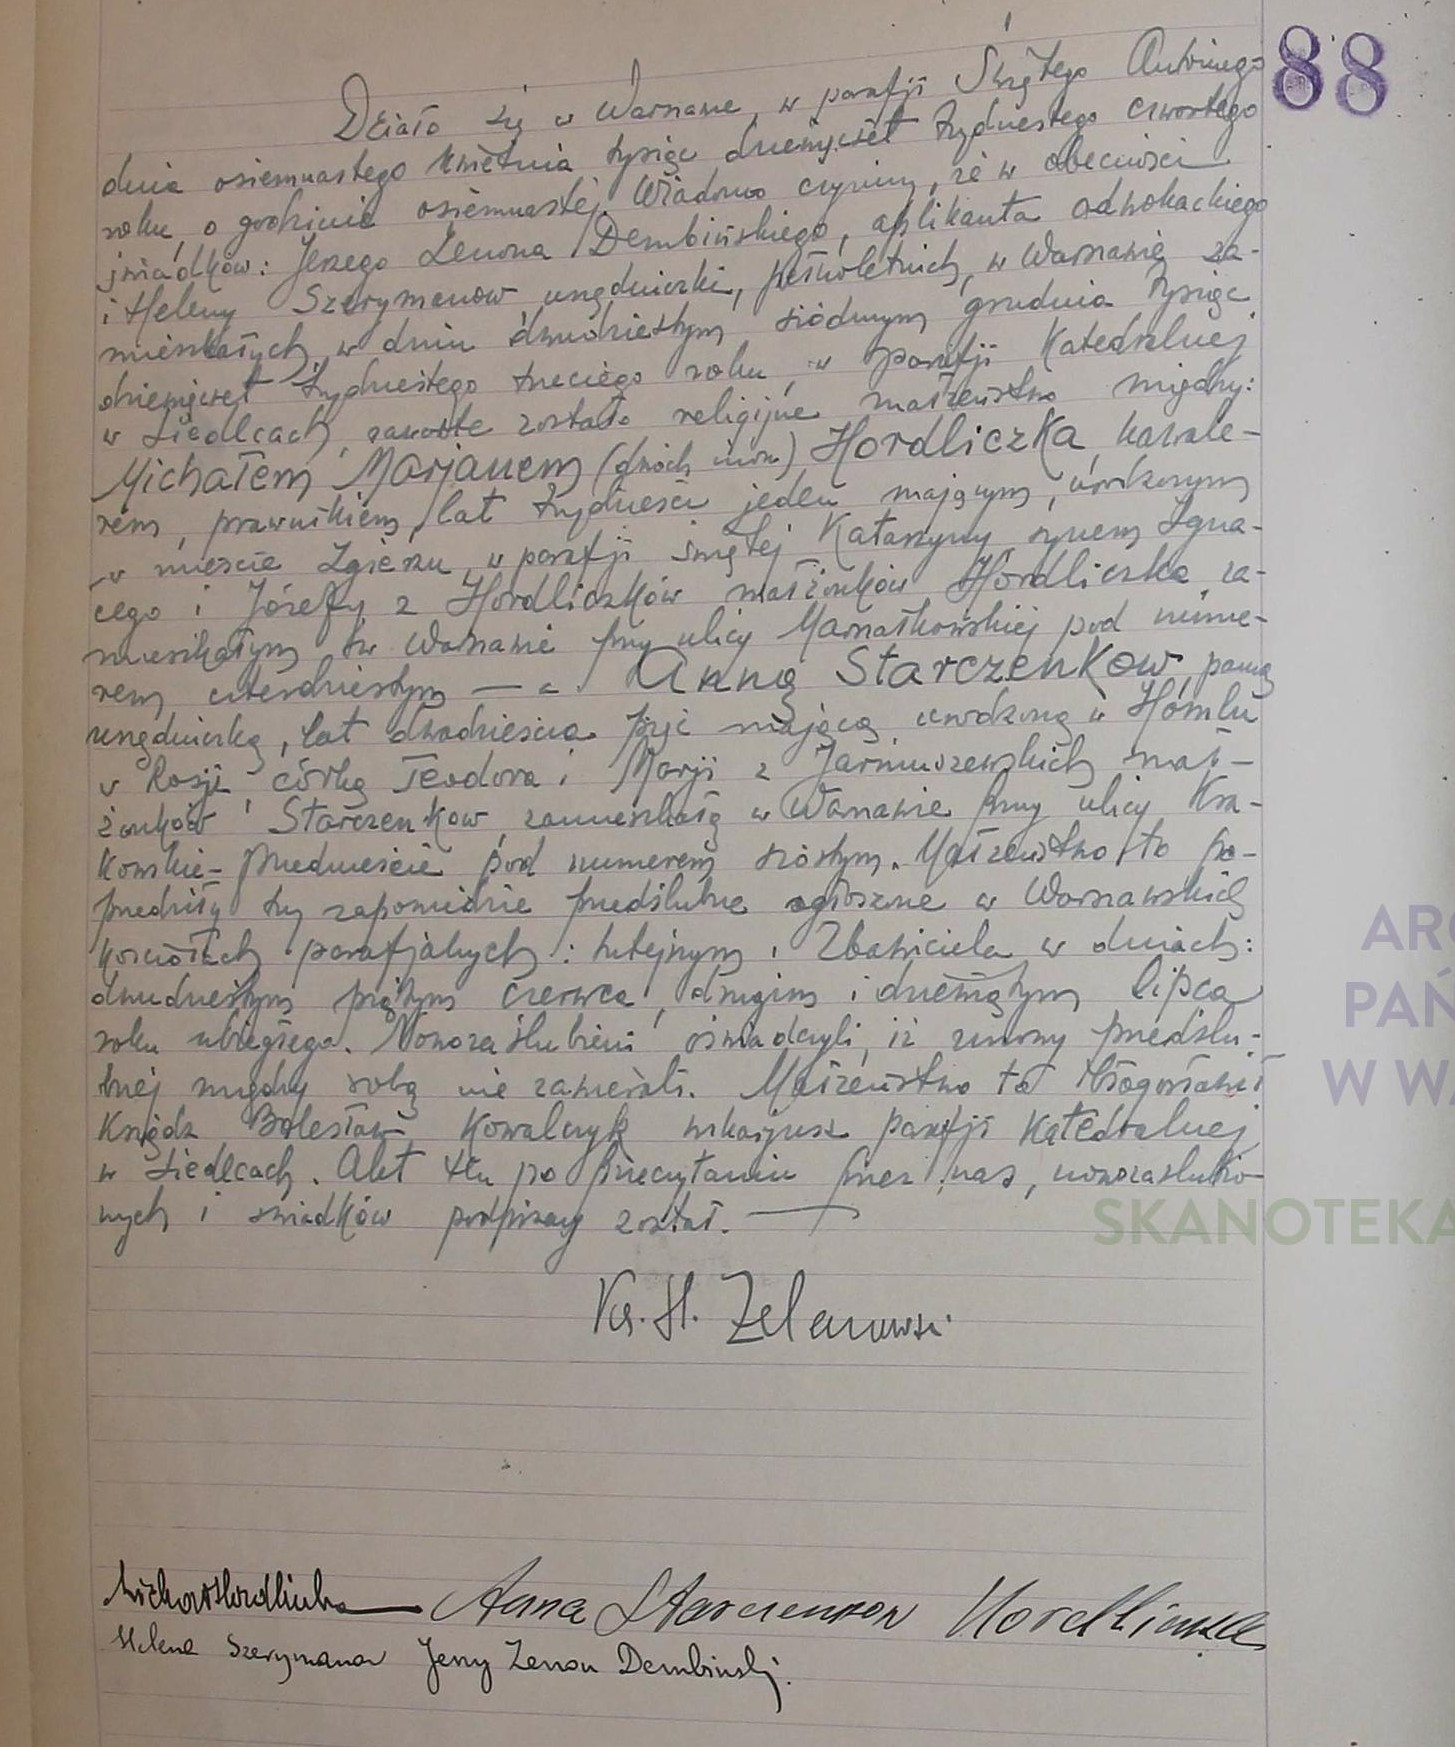 88
Działo się w Warszawie, w parafji Świętego Antoniego
dnia osiemnastego kwietnia tysiąc dziewięćset trzydziestego czwartego
roku, o godzinie osiemnastej. Wiadomo czynimy, że w obecności
świadków: Jerzego Zenona Dembińskiego, aplikanta adwokackiego
i Heleny Szerymanow urzędniczki, pełnoletnich, w Warszawie za-
mieszkałych, w dniu dwudziestym siódmym grudnia tysiąc
dziewięćset trzydziestego trzeciego roku, w parafji Katedralnej
w Siedlcach, zawarte zostało religijne małżeństwo między:
Michałem Marjanem (dwóch imion) Hordliczka, kawale-
rem, prawnikiem, lat trzydzieści jeden mającym, urodzonym
w mieście Zgierzu, w parafji świętej Katarzyny, synem Igna-
cego i Józefy z Hordliczków małżonków Hordliczka, za-
mieszkałym w Warszawie przy ulicy Marszałkowskiej pod nume-
rem czterdziestym — a Anną Starczenkow, panną
urzędniczką, lat dwadzieścia pięć mającą, urodzoną w Homlu
w Rosji, córką Teodora i Marji z Jarmuszewskich mał-
żonków Starczenkow, zamieszkałą w Warszawie przy ulicy Kra-
kowskie-Przedmieście pod numerem szóstym. Małżeństwo to po-
przedziły trzy zapowiedzie przedślubne ogłoszone w Warszawskich
kościołach parafjalnych: tutejszym i Zbawiciela w dniach:
dwudziestym piątym czerwca, drugim i dziewiątym lipca
roku ubiegłego. Nowozaślubieni oświadczyli, iż umowy przedślu-
bnej między sobą nie zawierali. Małżeństwo to błogosławił
Ksiądz Bolesław Kowalczyk wikarjusz parafji Katedralnej
w Siedlcach. Akt ten po przeczytaniu przez nas, nowozaślubio-
nych i świadków podpisany został. —
Ks. H. Zelanowski
Michał Hordliczka Anna Starczenkow Hordliczka
Helena Szerymanow Jerzy Zenon Dembiński.
ARC
PAŃ
W WA
SKANOTEKA